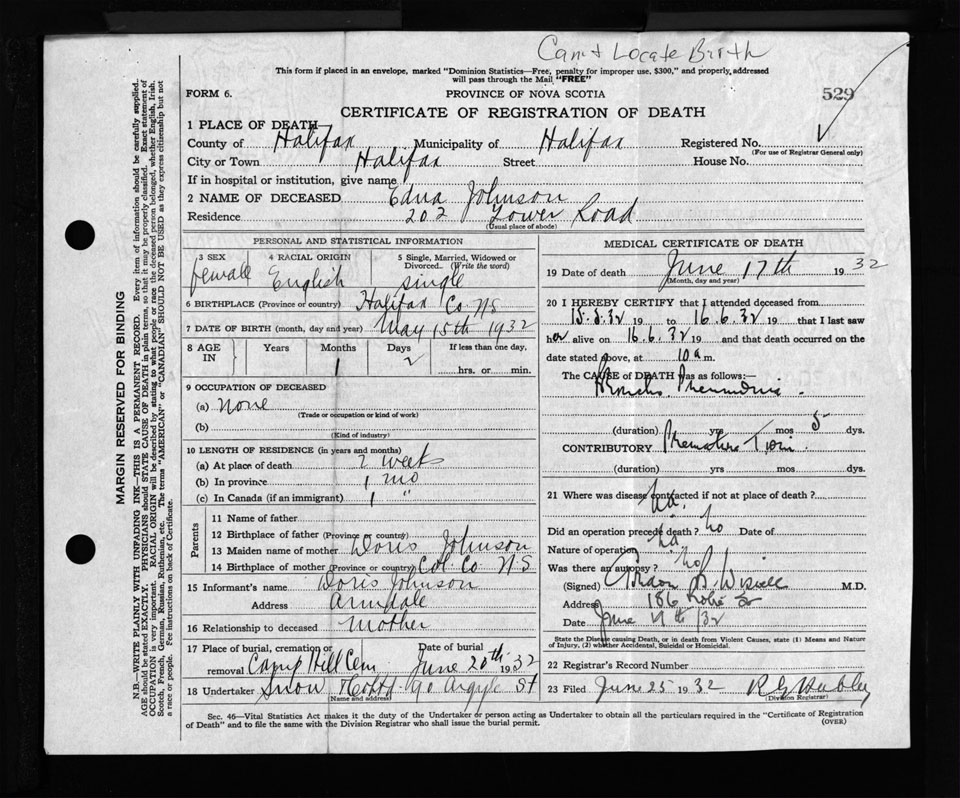 Can't Locate Birth
This form if placed in an envelope, marked "Dominion Statistics—Free, penalty for improper use, $300," and properly addressed
will pass through the Mail "FREE"
FORM 6.
PROVINCE OF NOVA SCOTIA
529
CERTIFICATE OF REGISTRATION OF DEATH
1 PLACE OF DEATH
County of Halifax Municipality of Halifax Registered No.
(For use of Registrar General only)
City or Town Halifax Street House No.
If in hospital or institution, give name
2 NAME OF DECEASED Edna Johnson
Residence 202 Tower Road
(Usual place of abode)
PERSONAL AND STATISTICAL INFORMATION
3 SEX female
4 RACIAL ORIGIN English
5 Single, Married, Widowed or Divorced.. (Write the word) single
6 BIRTHPLACE (Province or country) Halifax Co NS
7 DATE OF BIRTH (month, day and year) May 15th 1932
8 AGE IN Years Months 1 Days 2 If less than one day.
hrs. or min.
9 OCCUPATION OF DECEASED
(a) none
(Trade or occupation or kind of work)
(b)
(Kind of industry)
10 LENGTH OF RESIDENCE (in years and months)
(a) At place of death 2 weeks
(b) In province 1 mo
(c) In Canada (if an immigrant) 1 "
Parents
11 Name of father
12 Birthplace of father (Province or country)
13 Maiden name of mother Doris Johnson
14 Birthplace of mother (Province or country) Col. Co NS
15 Informant's name Doris Johnson
Address Armdale
16 Relationship to deceased mother
17 Place of burial, cremation or removal Camp Hill Cem Date of burial June 20th 1932
18 Undertaker Snow 90 Argyle St
(Name and address)
MEDICAL CERTIFICATE OF DEATH
19 Date of death June 17th 1932
(Month, day and year)
20 I HEREBY CERTIFY that I attended deceased from
15.5.32 19 to 16.6.32 19 that I last saw
her alive on 16.6.32 19 and that death occurred on the
date stated above, at 10 a m.
The CAUSE of DEATH was as follows:—
Broncho Pneumonia.
(duration) yrs mos 5 dys.
CONTRIBUTORY Premature Twin
(duration) yrs mos dys.
21 Where was disease contracted if not at place of death?
Did an operation precede death? no Date of
Nature of operation
Was there an autopsy? no
(Signed) M.D.
Address 186 St
Date June /32
State the Disease causing Death, or in death from Violent Causes, state (1) Means and Nature
of Injury, (2) whether Accidental, Suicidal or Homicidal.
22 Registrar's Record Number
23 Filed June 25 1932
(Division Registrar)
Sec. 46—Vital Statistics Act makes it the duty of the Undertaker or person acting as Undertaker to obtain all the particulars required in the "Certificate of Registration
of Death" and to file the same with the Division Registrar who shall issue the burial permit.
(OVER)
MARGIN RESERVED FOR BINDING
N.B.—WRITE PLAINLY WITH UNFADING INK—THIS IS A PERMANENT RECORD. Every item of information should be carefully supplied.
AGE should be stated EXACTLY. PHYSICIANS should STATE CAUSE OF DEATH in plain terms, so that it may be properly classified. Exact statement of
OCCUPATION is very important. RACIAL ORIGIN will be described by stating to what people or race the deceased person belonged, whether English, Irish,
Scotch, French, German, Russian, Ruthenian, etc. The terms "AMERICAN" or "CANADIAN" SHOULD NOT BE USED as they express citizenship but not
a race or people. Fee instructions on back of Certificate.